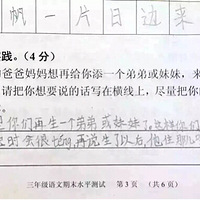 帆 一 片 日 边 来
践。（4分）
的爸爸妈妈想再给你添一个弟弟或妹妹，来
请把你想要说的话写在横线上，尽量把你的
你们再生一个弟弟或妹妹了，这样你们
时会很 再说生了以后，他
三年级语文期末水平测试 第3页 （共6页）